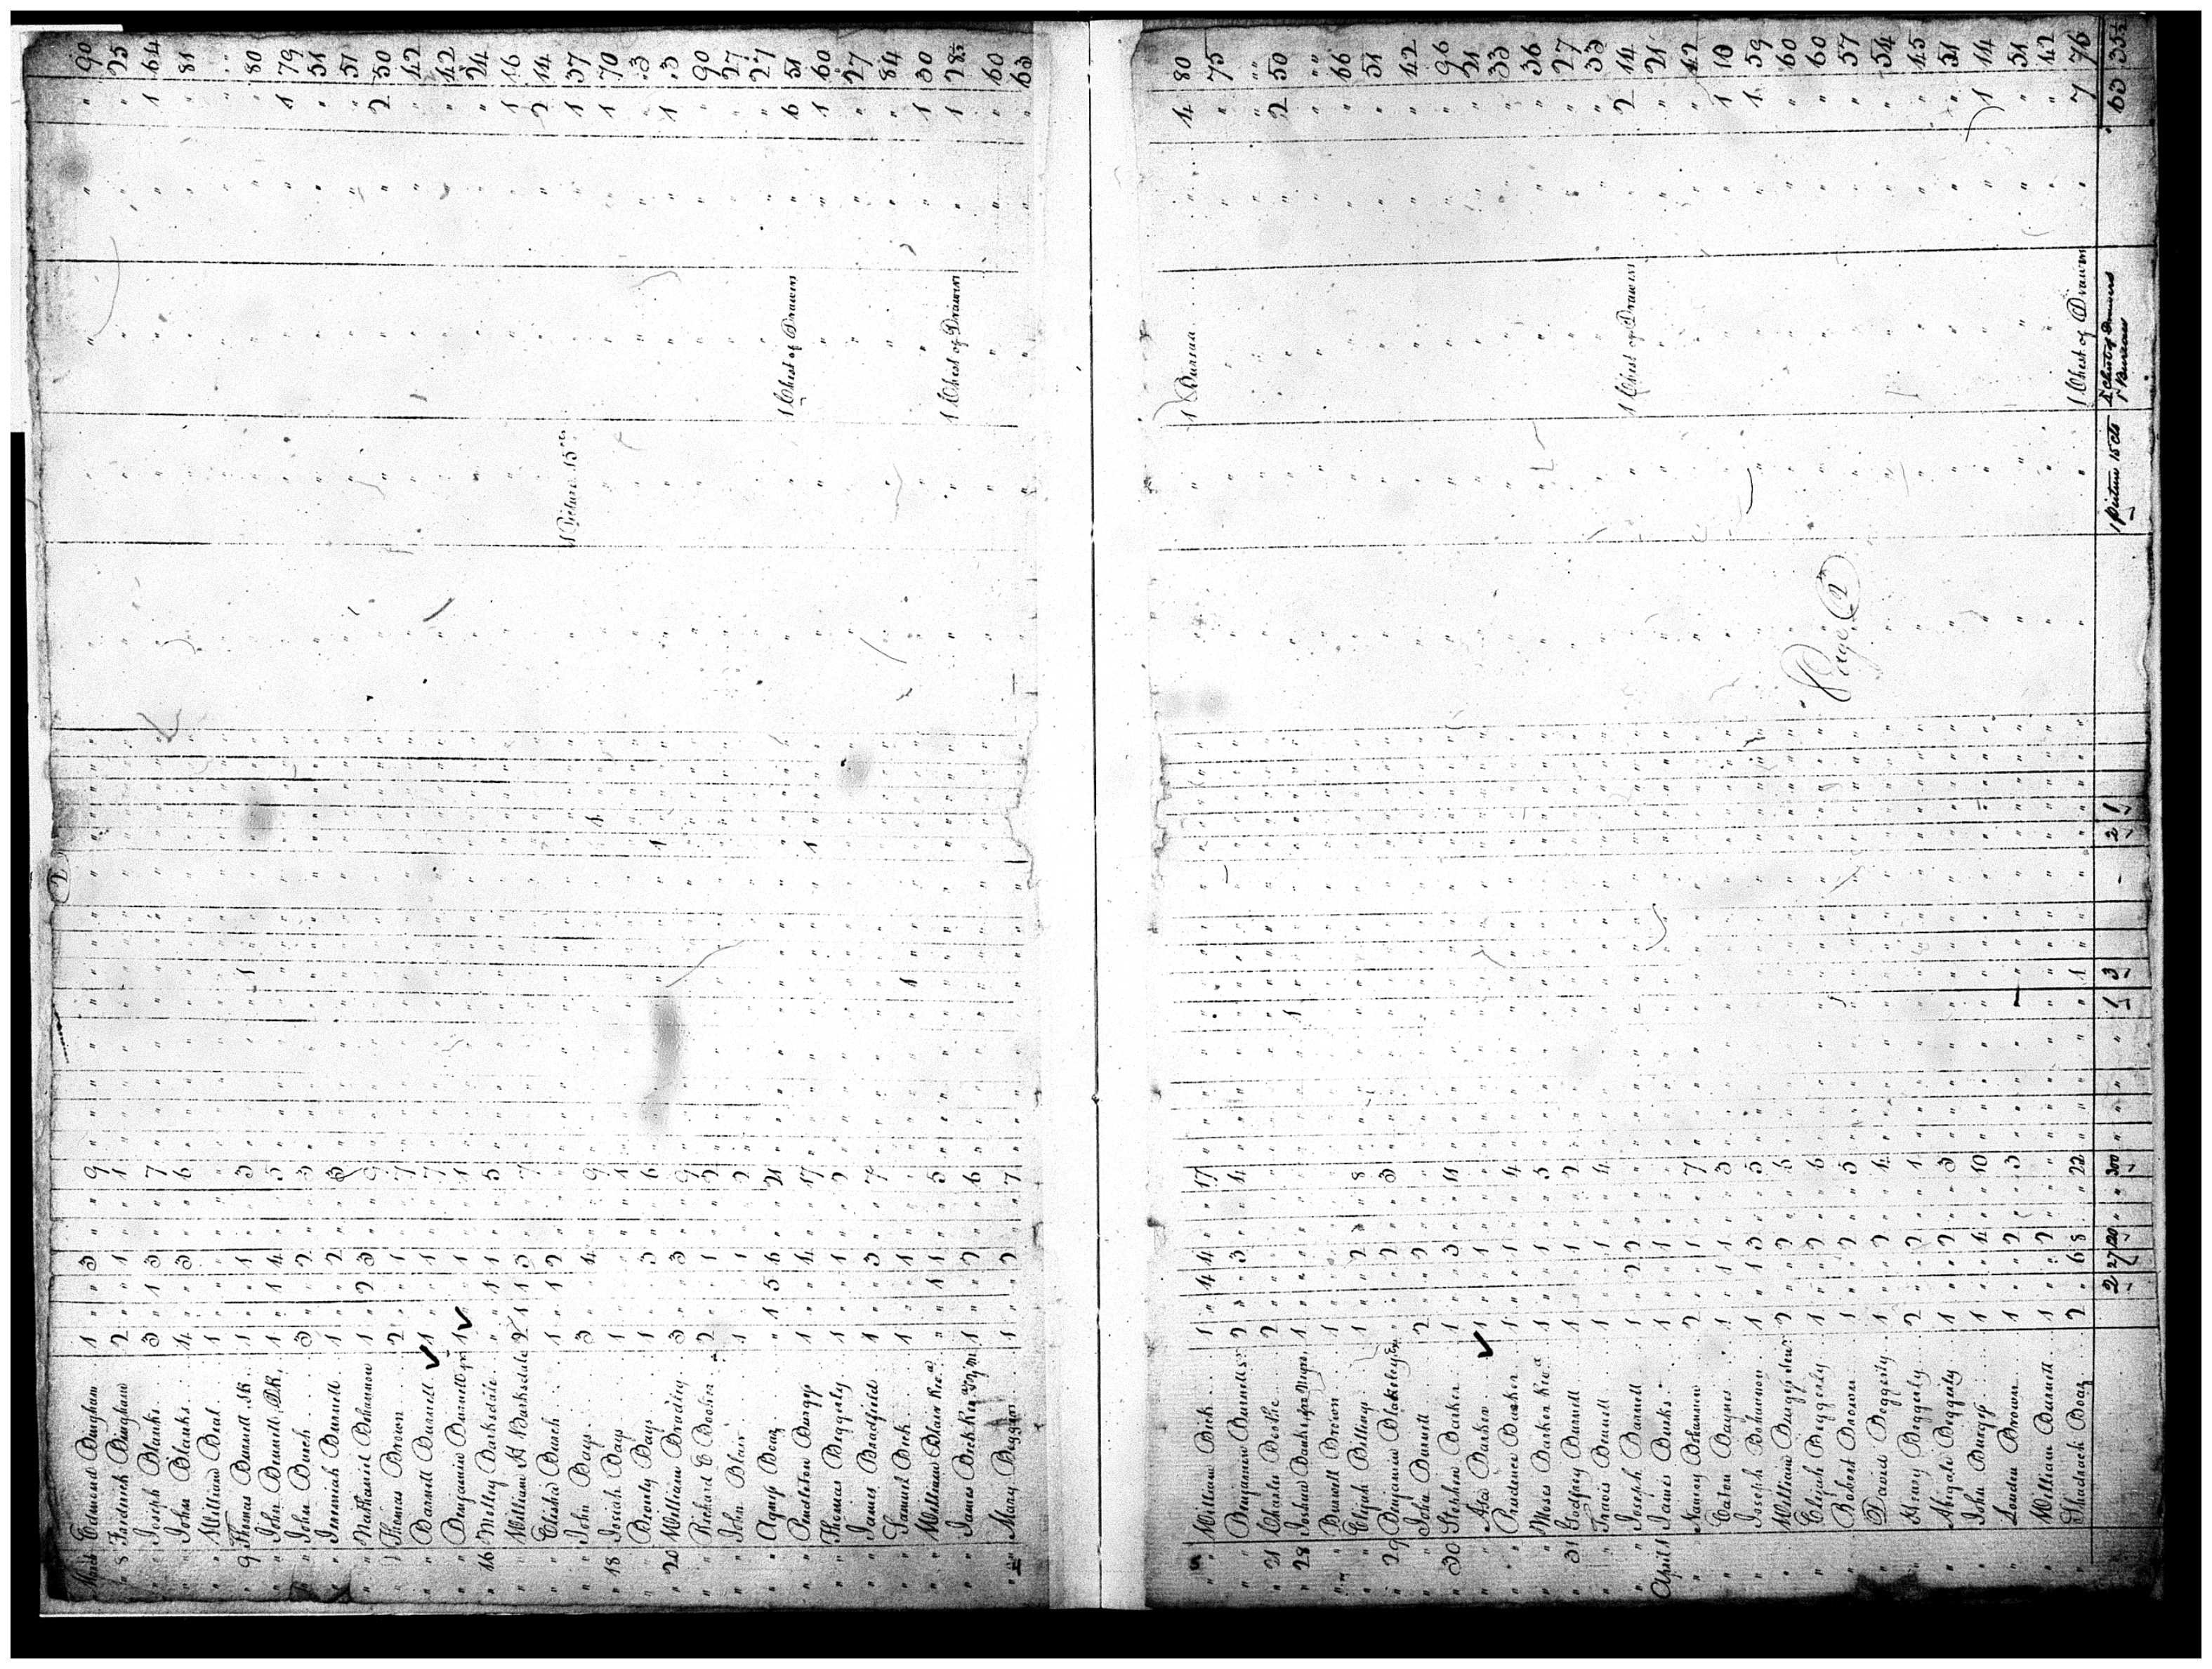 March Edmund Bingham 1 3 9 90
8 Frederick Bingham 2 1 1 25
Joseph Blanks 3 1 3 7 1 64
John Blanks 4 3 6 81
William Beal 1
9 Thomas Burnill SR 1 1 3 1 80
John Burnill, DR, 1 4 5 1 79
John Bunch 3 2 3 51
Jeremiah Burnill 1 2 3 51
Nathaniel Bohannon 1 2 3 9 2 50
Thomas Brown 2 1 7 42
Barnill Burnill 1 1 7 42
Benjamin Burnill 1 1 1 24
16 Motley Barksdale 1 1 5 1 16
William H Barksdale 2 1 1 3 7 2 14
Elisha Bunch 1 1 2 1 Picture 15 cts 1 37
John Bays 3 4 9 1 1 70
18 Josiah Bays 1 1 3
Bronly Bays 1 3 6 1 1 3
20 William Bradley 3 3 9 90
Richard C Booker 2 1 2 27
John Blair 1 1 2 27
Agness Boaz 1 5 6 21 1 Chest of Drawers 6 51
Pendleton Burgess 1 4 17 1 1 60
Thomas Beggerly 1 1 2 27
James Bradfield 1 3 7 84
Samuel Beck 1 1 1 1 30
William Blair 1 1 5 1 Chest of Drawers 1 28½
James Beck 1 2 6 60
Mary 1 2 7 63
William Beck 1 4 4 17 1 Bureau 4 80
Benjamin Burnill 2 3 4 75
21 Charles Beske 2
28 Joshua Banks 1 1 2 50
Burwell Brown 1
Elijah Billings 1 2 8 66
29 Benjamin Blakeley 2 3 51
John Burnill 2 2 42
30 Stephen Barker 1 3 11 96
Asa Barker 1 1 21
Prudence Barker 1 1 4 33
Moses Barker 1 1 5 36
31 Godfrey Burnill 1 1 2 27
Travis Burnill 1 1 4 33
Joseph Burnill 1 2 2 1 Chest of Drawers 2 14
April 1 James Banks 1 1 21
Nancy Bohannon 2 1 7 42
Eaton Baynes 1 1 1 3 1 10
Joseph Bohannon 1 1 3 5 1 59
William Burgess Senr 2 2 5 60
Elijah Beggerly 1 2 6 60
Robert Brown 1 2 5 57
David Beggerly 1 2 4 54
Henry Beggerly 2 2 1 45
Abigale Beggerly 1 2 3 51
John Burgess 1 4 10 1 14
London Brown 1 2 3 51
William Burnill 1 2 42
Shadrack Boaz 2 6 8 22 1 1 Chest of Drawers 7 76
2 27 120 300 1 3 2 1 1 picture 15 cts 4 Chest of Drawers 1 Bureau 63 35½
Page 2
2